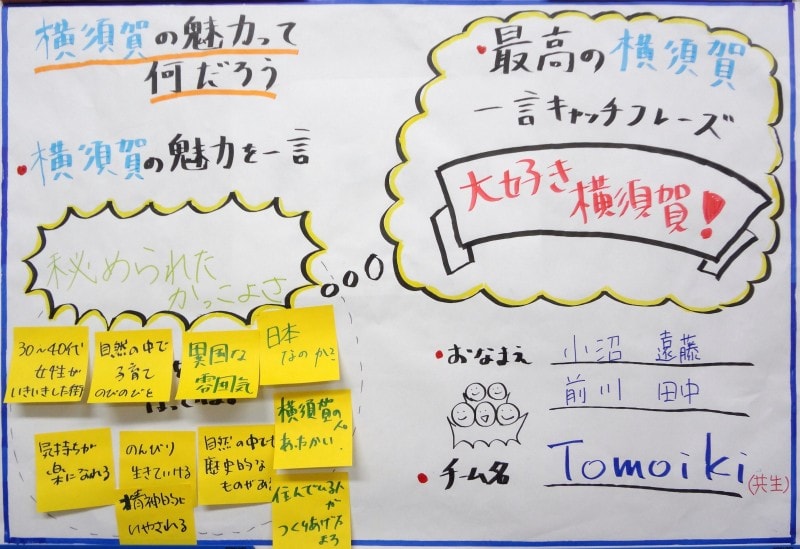 横須賀の魅力って
何だろう
・横須賀の魅力を一言
秘められた
かっこよさ
30～40代
女性が
いきいきした街
自然の中で
子育て
のびのびと
異国な
雰囲気
日本
なのか?
気持ちが
楽になれる
のんびり
生きていける
精神的に
いやされる
自然の中でも
歴史的な
ものがある
横須賀の人
あたたかい
住んでいる人
が
つくりあげた
まち
・最高の横須賀
一言キャッチフレーズ
大好き
横須賀!
・おなまえ 小沼 遠藤
前川 田中
・チーム名 Tomoiki
(共生)